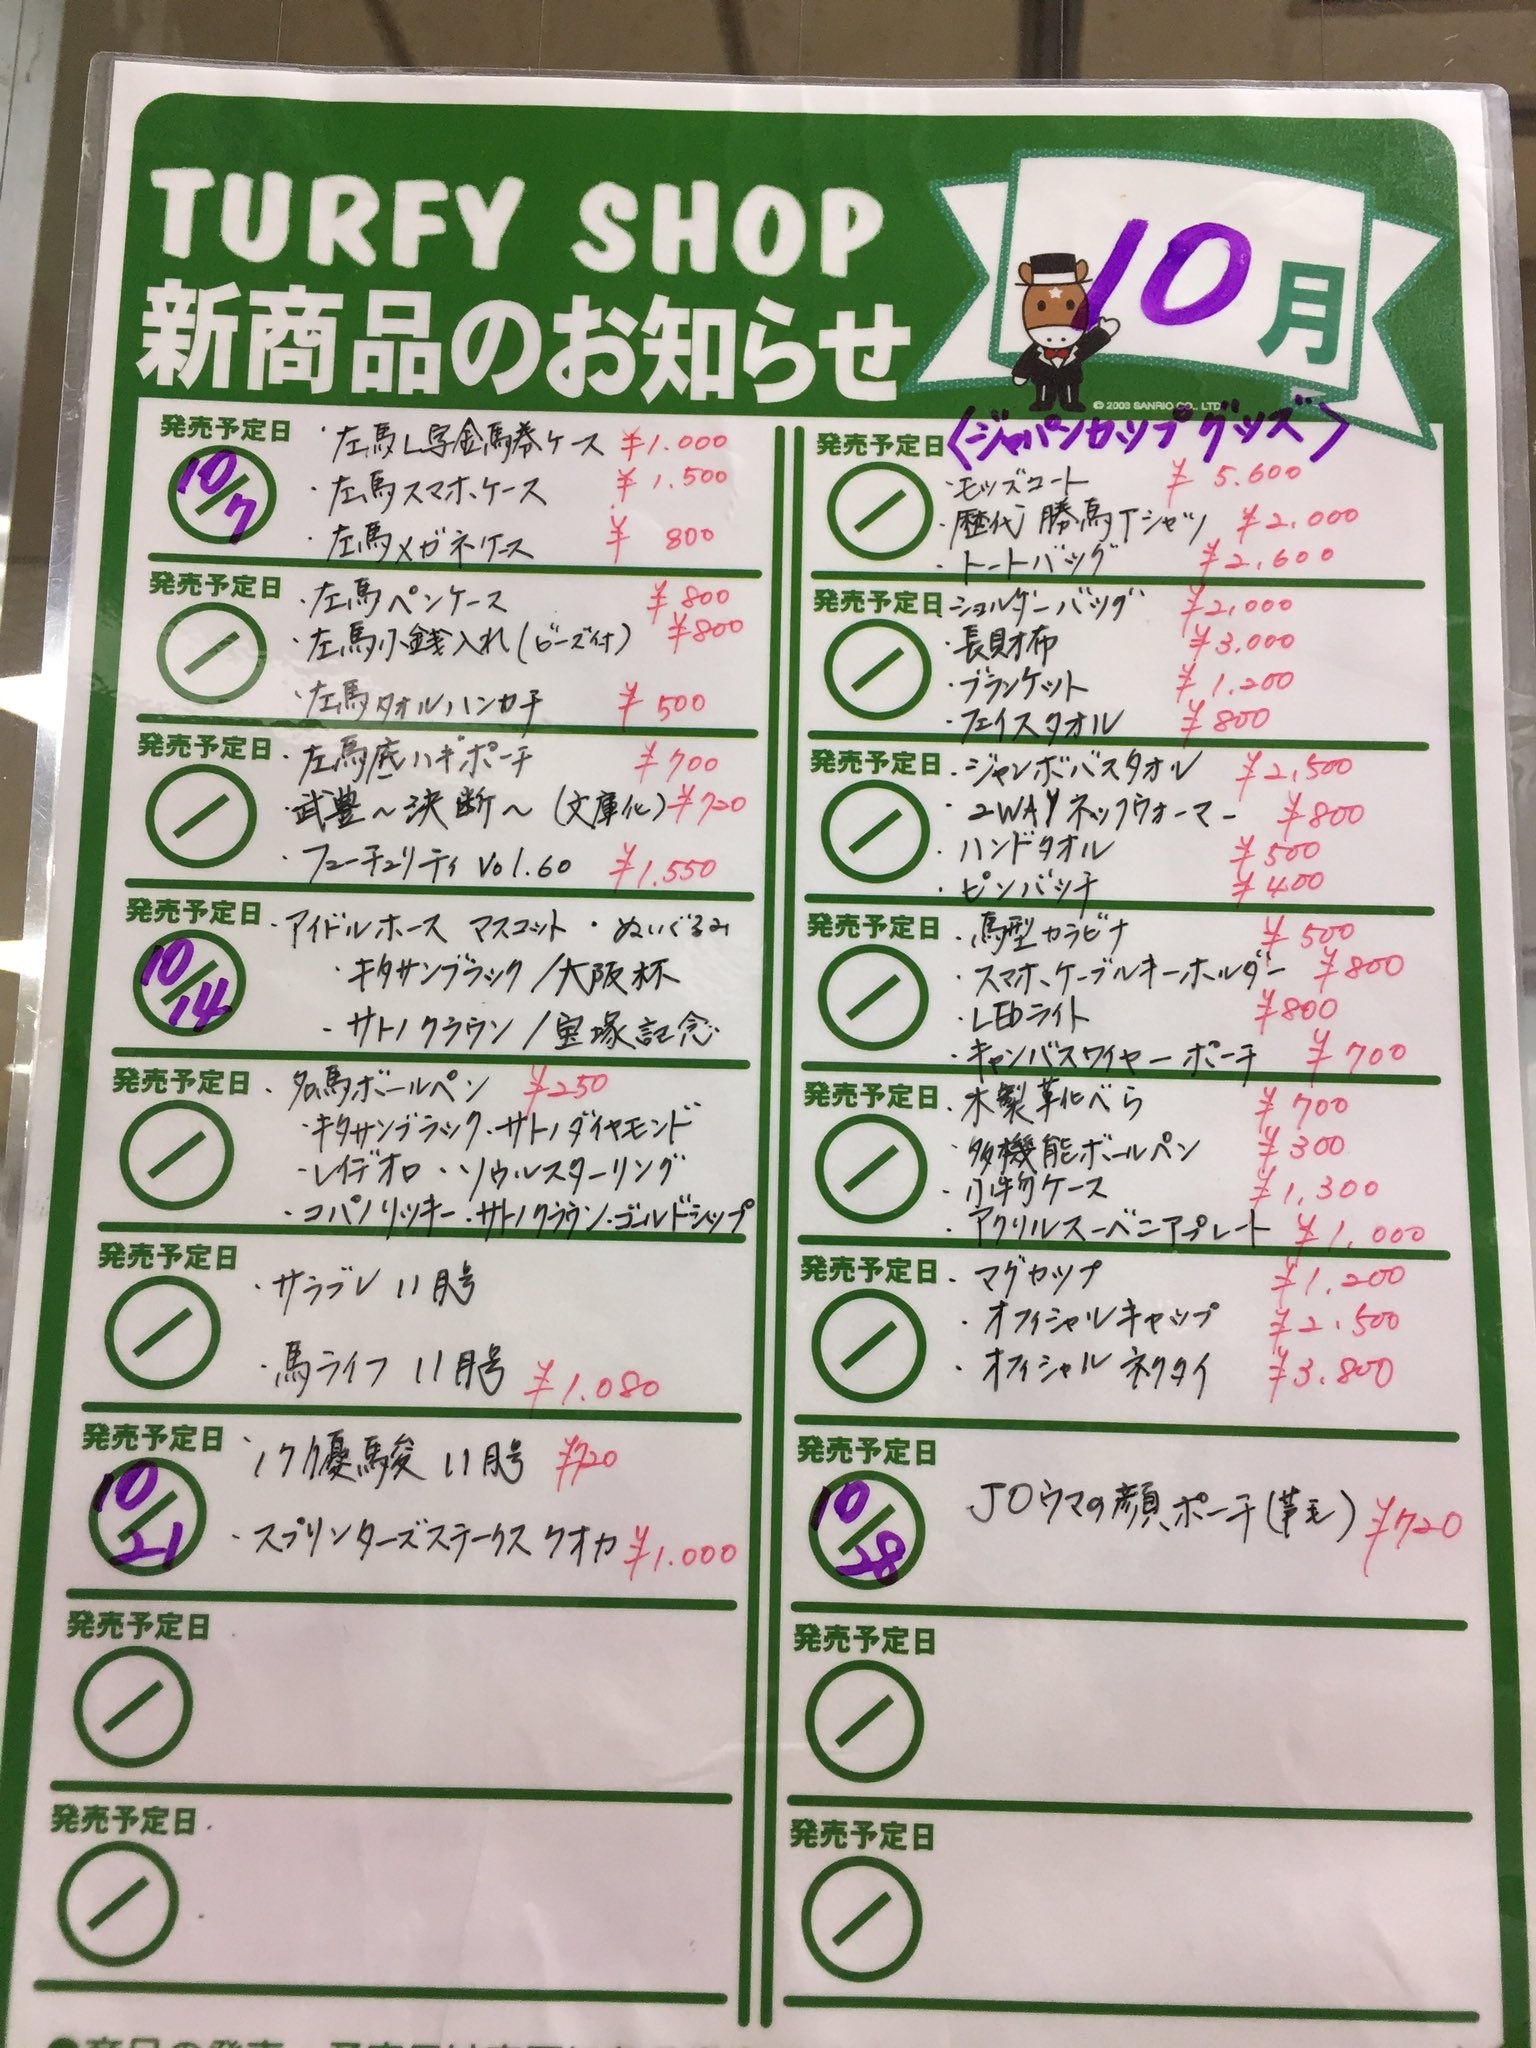 TURFY SHOP
新商品のお知らせ
10月
© 2003 SANRIO CO., LTD
発売予定日
10/7
・左馬L字金馬券ケース ¥1.000
・左馬スマホケース ¥1,500
・左馬メガネケース ¥800
発売予定日
・左馬ペンケース ¥800
・左馬小銭入れ(ビーズ付) ¥800
・左馬タオルハンカチ ¥500
発売予定日
・左馬底ハギポーチ ¥700
・武豊～決断～(文庫化) ¥720
・フューチュリティ Vol.60 ¥1.550
発売予定日
10/14
・アイドルホース マスコット・ぬいぐるみ
・キタサンブラック/大阪杯
・サトノクラウン/宝塚記念
発売予定日
・名馬ボールペン ¥250
・キタサンブラック・サトノダイヤモンド
・レイデオロ・ソウルスターリング
・コパノリッキー・サトノクラウン・ゴールドシップ
発売予定日
・サラブレ 11月号
・馬ライフ 11月号 ¥1.080
発売予定日
10/21
優駿 11月号 ¥720
・スプリンターズステークス クオカ ¥1.000
発売予定日
発売予定日
〈ジャパンカップグッズ〉
発売予定日
・モッズコート ¥5.600
・歴代勝馬Tシャツ ¥2.000
・トートバッグ ¥2.600
発売予定日
・ショルダーバッグ ¥2,000
・長財布 ¥3.000
・ブランケット ¥1.200
・フェイスタオル ¥800
発売予定日
・ジャンボバスタオル ¥2,500
・2WAYネックウォーマー ¥800
・ハンドタオル ¥500
・ピンバッチ ¥400
発売予定日
・馬型カラビナ ¥500
・スマホケーブルキーホルダー ¥800
・LEDライト ¥800
・キャンバスワイヤーポーチ ¥700
発売予定日
・木製靴べら ¥700
・多機能ボールペン ¥300
・小物ケース ¥1,300
・アクリルスーベニアプレート ¥1,000
発売予定日
・マグカップ ¥1.200
・オフィシャルキャップ ¥2.500
・オフィシャルネクタイ ¥3.800
発売予定日
10/28
JOウマの顔ポーチ(芦毛) ¥720
発売予定日
発売予定日